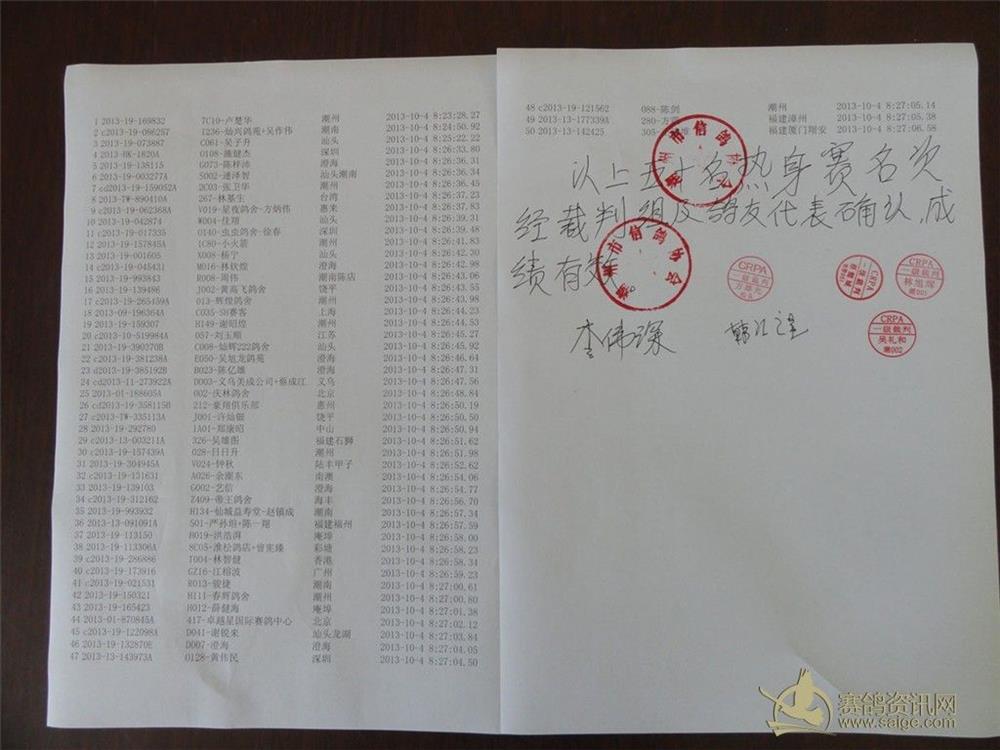 1 2013-19-169832 7C10-卢楚华 潮州 2013-10-4 8:23:28.27
2 c2013-19-086257 I236-灿兴鸽苑+吴作伟 潮南 2013-10-4 8:24:50.92
3 2013-19-073887 C061-吴子升 汕头 2013-10-4 8:26:22.22
4 2013-HK-1820A 0108-施健杰 深圳 2013-10-4 8:26:33.80
5 2013-19-138115 G073-陈梓沛 澄海 2013-10-4 8:26:36.31
6 2013-19-003277A S002-逄泽智 汕头潮南 2013-10-4 8:26:36.34
7 cd2013-19-159052A 2C03-张卫华 潮州 2013-10-4 8:26:36.45
8 2013-TW-890410A 267-林基生 台湾 2013-10-4 8:26:37.23
9 c2013-19-062368A V019-星夜鸽舍-方炳伟 惠来 2013-10-4 8:26:37.83
10 2013-19-042874 W004-佳翔 汕头 2013-10-4 8:26:39.31
11 c2013-19-017335 0140-虫虫鸽舍-徐春 深圳 2013-10-4 8:26:39.48
12 2013-19-157845A 1C80-小火箭 潮州 2013-10-4 8:26:41.83
13 2013-19-001605 X008-杨宁 汕头 2013-10-4 8:26:42.30
14 c2013-19-045431 M016-林钦煌 澄海 2013-10-4 8:26:42.98
15 2013-19-993843 R008-周伟 潮南陈店 2013-10-4 8:26:43.06
16 2013-19-139486 J002-黄高飞鸽舍 饶平 2013-10-4 8:26:43.55
17 c2013-19-265459A 013-辉煌鸽舍 潮州 2013-10-4 8:26:43.98
18 2013-09-196364A C035-SH赛客 上海 2013-10-4 8:26:44.23
19 2013-19-159307 H149-谢昭煌 潮州 2013-10-4 8:26:44.53
20 c2013-10-519984A 057-刘玉顺 江苏 2013-10-4 8:26:45.27
21 2013-19-390370B C008-灿辉222鸽舍 汕头 2013-10-4 8:26:45.92
22 c2013-19-381238A E050-吴旭龙鸽苑 澄海 2013-10-4 8:26:46.64
23 d2013-19-385192B B023-陈亿雄 澄海 2013-10-4 8:26:47.31
24 cd2013-11-273922A D003-义乌美成公司+蔡成江 义乌 2013-10-4 8:26:47.56
25 2013-01-188605A 002-庆林鸽舍 北京 2013-10-4 8:26:48.84
26 cd2013-19-358115B 212-豪翔俱乐部 惠州 2013-10-4 8:26:50.19
27 c2013-TW-335113A J001-许灿银 饶平 2013-10-4 8:26:50.50
28 2013-19-292780 1A01-郑康昭 中山 2013-10-4 8:26:50.94
29 c2013-13-003211A 326-吴雄图 福建石狮 2013-10-4 8:26:51.62
30 c2013-19-157439A 028-日日升 潮州 2013-10-4 8:26:51.98
31 2013-19-304945A V024-钟秋 陆丰甲子 2013-10-4 8:26:52.62
32 c2013-19-131631 A026-余潮东 南澳 2013-10-4 8:26:54.06
33 2013-19-139103 G002-艺信 澄海 2013-10-4 8:26:54.77
34 c2013-19-312162 Z409-帝王鸽舍 海丰 2013-10-4 8:26:56.70
35 2013-19-993932 H134-仙城益寿堂-赵镇成 潮南 2013-10-4 8:26:57.34
36 2013-13-091091A S01-严孙坦+陈一翔 福建福州 2013-10-4 8:26:57.59
37 2013-19-113150 H019-洪浩湃 庵埠 2013-10-4 8:26:58.00
38 2013-19-113306A 8C05-淮松鸽店+曾宪臻 彩塘 2013-10-4 8:26:58.23
39 c2013-19-286886 T004-林智健 香港 2013-10-4 8:26:58.34
40 c2013-19-173916 GZ16-江榕波 广州 2013-10-4 8:26:59.23
41 c2013-19-021531 R013-骏捷 潮南 2013-10-4 8:27:00.61
42 2013-19-150321 H111-春辉鸽舍 潮州 2013-10-4 8:27:00.80
43 2013-19-165423 H012-薛健海 庵埠 2013-10-4 8:27:01.38
44 2013-01-870845A 417-卓越星国际赛鸽中心 北京 2013-10-4 8:27:02.12
45 c2013-19-122098A D041-谢锐来 汕头龙湖 2013-10-4 8:27:03.84
46 2013-19-132870E D007-澄海 澄海 2013-10-4 8:27:04.05
47 2013-13-143973A 0128-黄伟民 深圳 2013-10-4 8:27:04.50
48 c2013-19-121562 088-陈剑 潮州 2013-10-4 8:27:05.14
49 2013-13-177339A 280-方 福建漳州 2013-10-4 8:27:06.38
50 2013-13-142425 305- 福建厦门翔安 2013-10-4 8:27:06.58
州市信鸽协会
以上五十名热身赛名次
经裁判组及鸽友代表确认,成
绩有效。
州市信鸽协会
CRPA 一级裁判
CRPA 一级裁判
CRPA 一级裁判 林旭辉 潮001
CRPA 一级裁判 吴礼和 潮002
李伟琛
赛鸽资讯网
www.saige.com